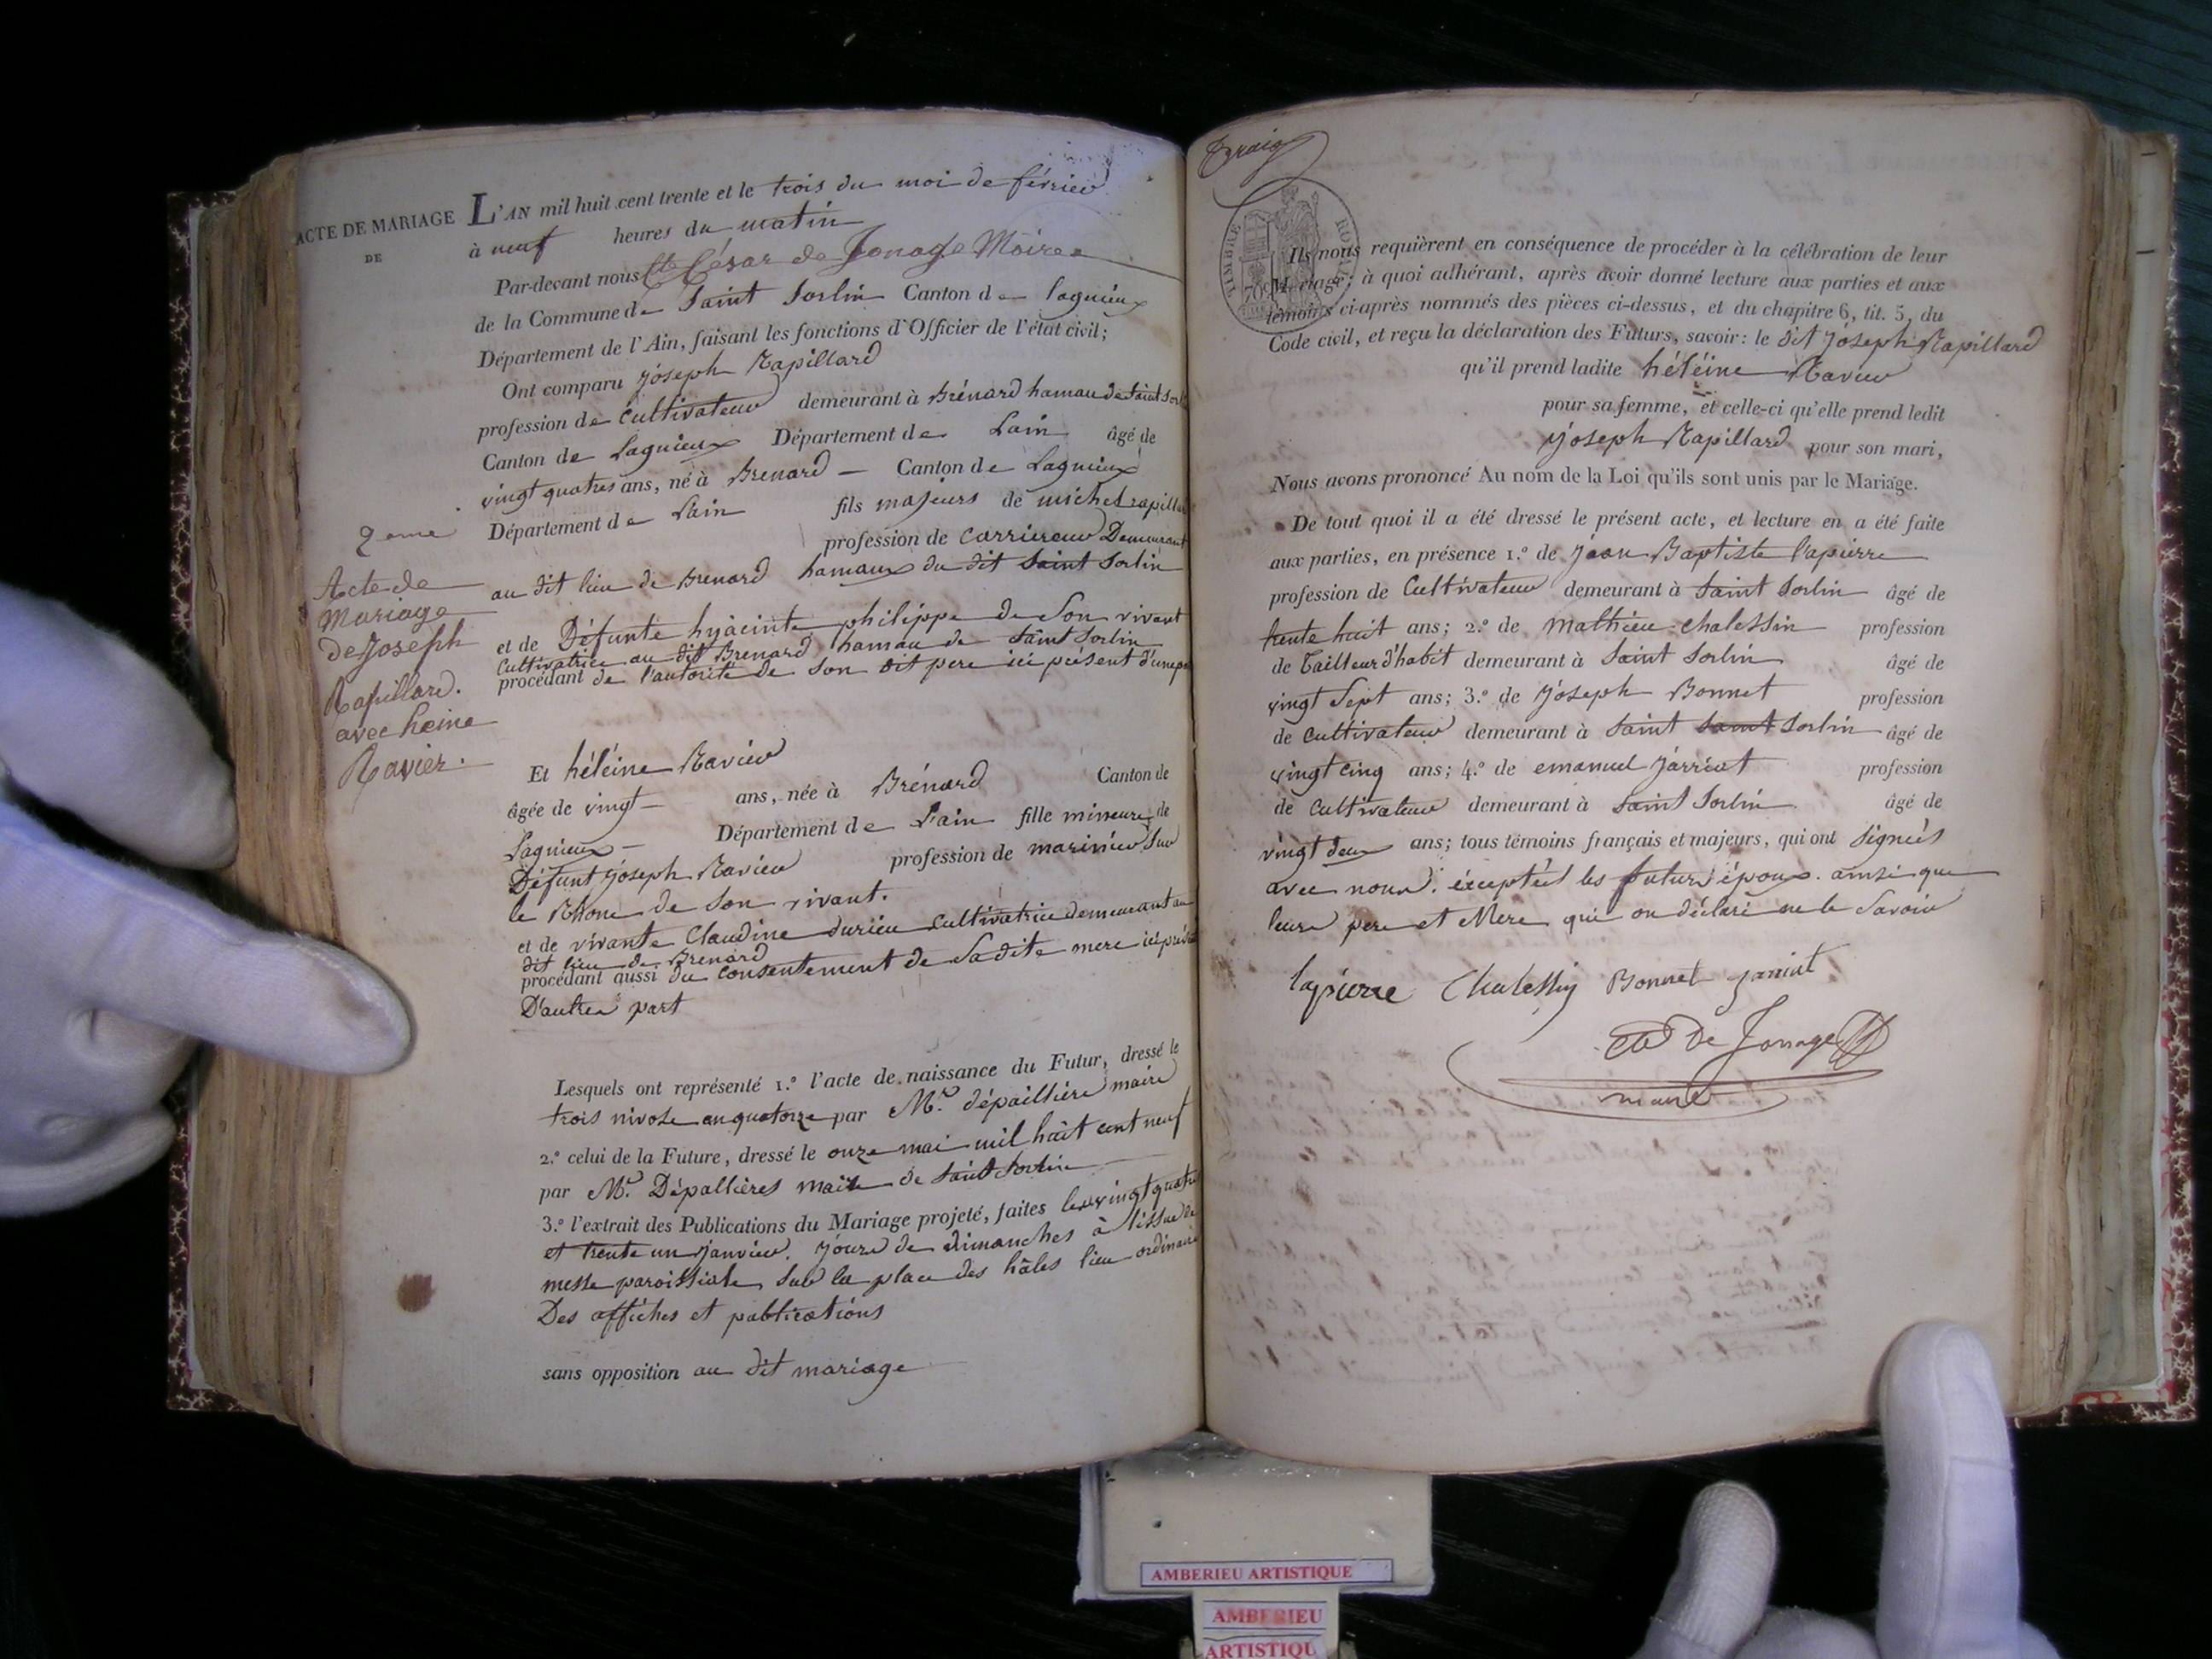 ACTE DE MARIAGE
DE
2eme
Acte de
Mariage
de Joseph
Rapillard.
avec heine
Ravier.
L'AN mil huit cent trente et le trois du moi de février
à neuf heures du matin
Par-devant nous Cte César de Jonage Maire
de la Commune de Saint Sorlin Canton de lagnieux
Département de l'Ain, faisant les fonctions d'Officier de l'état civil;
Ont comparu joseph Rapillard
profession de cultivateur demeurant à Brénard hamau de Saint Sor
Canton de Lagnieux Département de Lain âgé de
vingt quatres ans, né à Brenard — Canton de Lagnieux
Département de Lain fils majeurs de michel rapillar
profession de carriereur Demeurant
au dit lieu de Brenard hamaux du dit Saint Sorlin
et de Défunte hyacinte philippe de Son vivant
Cultivatrice au dit Brenard hamau de Saint Sorlin
procédant de l'autorité de son dit pere ici présent d'une pa
Et héléine Ravier
âgée de vingt — ans, née à Brénard Canton de
Lagnieux — Département de L'ain fille mineure de
Défunt joseph Ravier profession de marinier Sur
le Rhone de Son vivant.
et de vivante Claudine durieu Cultivatrice demeurant au
dit lieu de Brenard
procédant aussi du consentement de Sadite mere ici prés
D'autre part
Lesquels ont représenté 1.º l'acte de naissance du Futur, dressé le
trois nivose an quatorze par Mr. dépaillière maire
2.º celui de la Future, dressé le onze mai mil huit cent neuf
par Mr. Dépallières maire de Saint Sorlin
3.º l'extrait des Publications du Mariage projeté, faites les vingt quatre
et trente un janvier. jours de dimanches à lissue de
messe paroissiale Sur la place des hâles lieu ordinaire
Des affiches et publications
sans opposition au dit mariage
TIMBRE ROYAL
70
Ils nous requièrent en conséquence de procéder à la célébration de leur
Mariage; à quoi adhérant, après avoir donné lecture aux parties et aux
témoins ci-après nommés des pièces ci-dessus, et du chapitre 6, tit. 5, du
Code civil, et reçu la déclaration des Futurs, savoir: le dit joseph Rapillard
qu'il prend ladite héléine Ravier
pour sa femme, et celle-ci qu'elle prend ledit
joseph Rapillard pour son mari,
Nous avons prononcé Au nom de la Loi qu'ils sont unis par le Mariage.
De tout quoi il a été dressé le présent acte, et lecture en a été faite
aux parties, en présence 1.º de jean Baptiste lapierre
profession de Cultivateur demeurant à Saint Sorlin âgé de
trente huit ans; 2.º de mathieu chalessin profession
de Tailleur d'habit demeurant à Saint Sorlin âgé de
vingt Sept ans; 3.º de joseph Bonnet profession
de cultivateur demeurant à Saint Saint Sorlin âgé de
vingt cinq ans; 4.º de emanuel jarriot profession
de cultivateur demeurant à Saint Sorlin âgé de
vingt deux ans; tous témoins français et majeurs, qui ont signés
avec nous. éxceptéé les futurs époux. ainsi que
leurs pere et Mere qui on déclaré ne le Savoir
lapierre Chalessin Bonnet
Cte De Jonage
maire
AMBERIEU ARTISTIQUE
AMBERIEU
ARTISTIQU